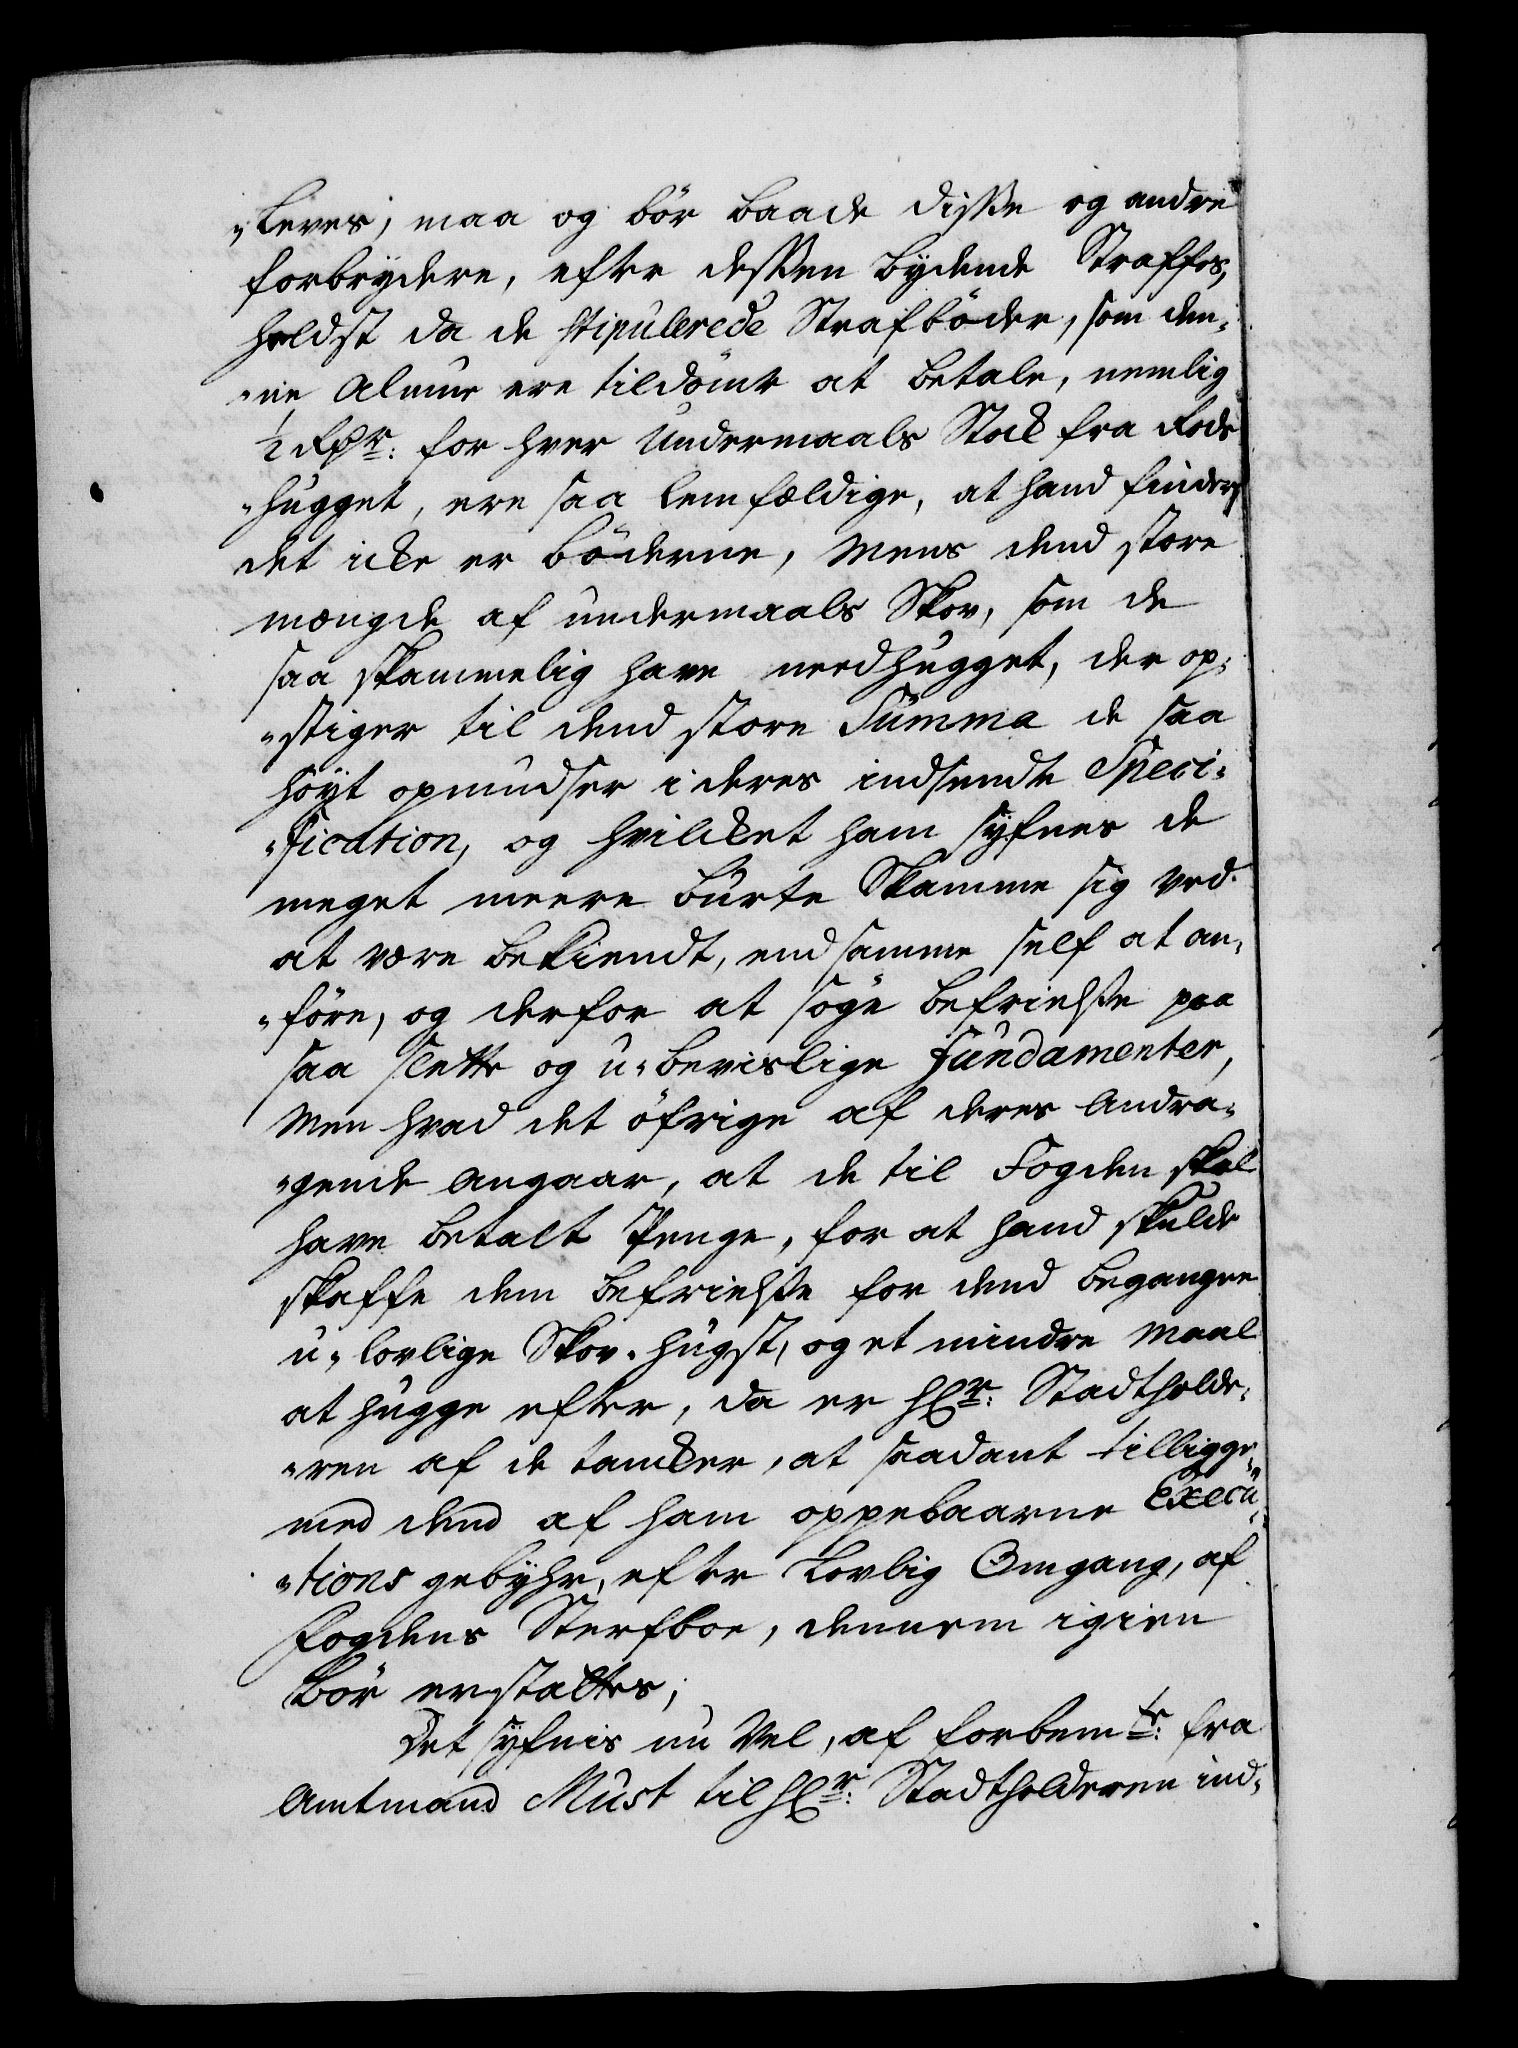 "leves, maa og bör baade disse og andre
forbrydere, efter dessen bydende Straffes,
heldst da de stipulerede Strafböder, som den„
„ne Almue ere tildömt at betale, nemlig
½ Rdr: for hver Undermaals Stok fra Rode
„hugget, ere saa lemfældige, at hand finder
det icke er böderne, Mens dend store
mængde af undermaals Skov, som de
saa skammelig have needhugget, der op„
„stiger til dend store Summa de saa
höyt opmudser i deres indsendte Speci„
„fication, og hvilcket ham syfnes de
meget meere burte Skamme sig ved
at være bekiendt, end samme self at an„
„före, og derfor at söge befrielse paa
saa slette og u„bevislige Fundamenter,
Men hvad det öfrige af deres Andra„
„gende Angaar, at de til Fogden skal
have betalt Penge, for at hand skulde
skaffe dem befrielse for dend begangne
u„lovlige Skov„hugst, og et mindre Maal
at hugge efter, da er Hr: Stadtholde„
„ren af de tancker, at saadant tilligge„
med dend af ham oppebaarne Execu„
„tions gebyhr, efter Lovlig Omgang, af
Fogdens Sterfboe, dennem igien
bör erstattes;
Det syfnis nu Vel, af forbemte: fra
Amtmand Must til Hr: Stadtholderen ind„